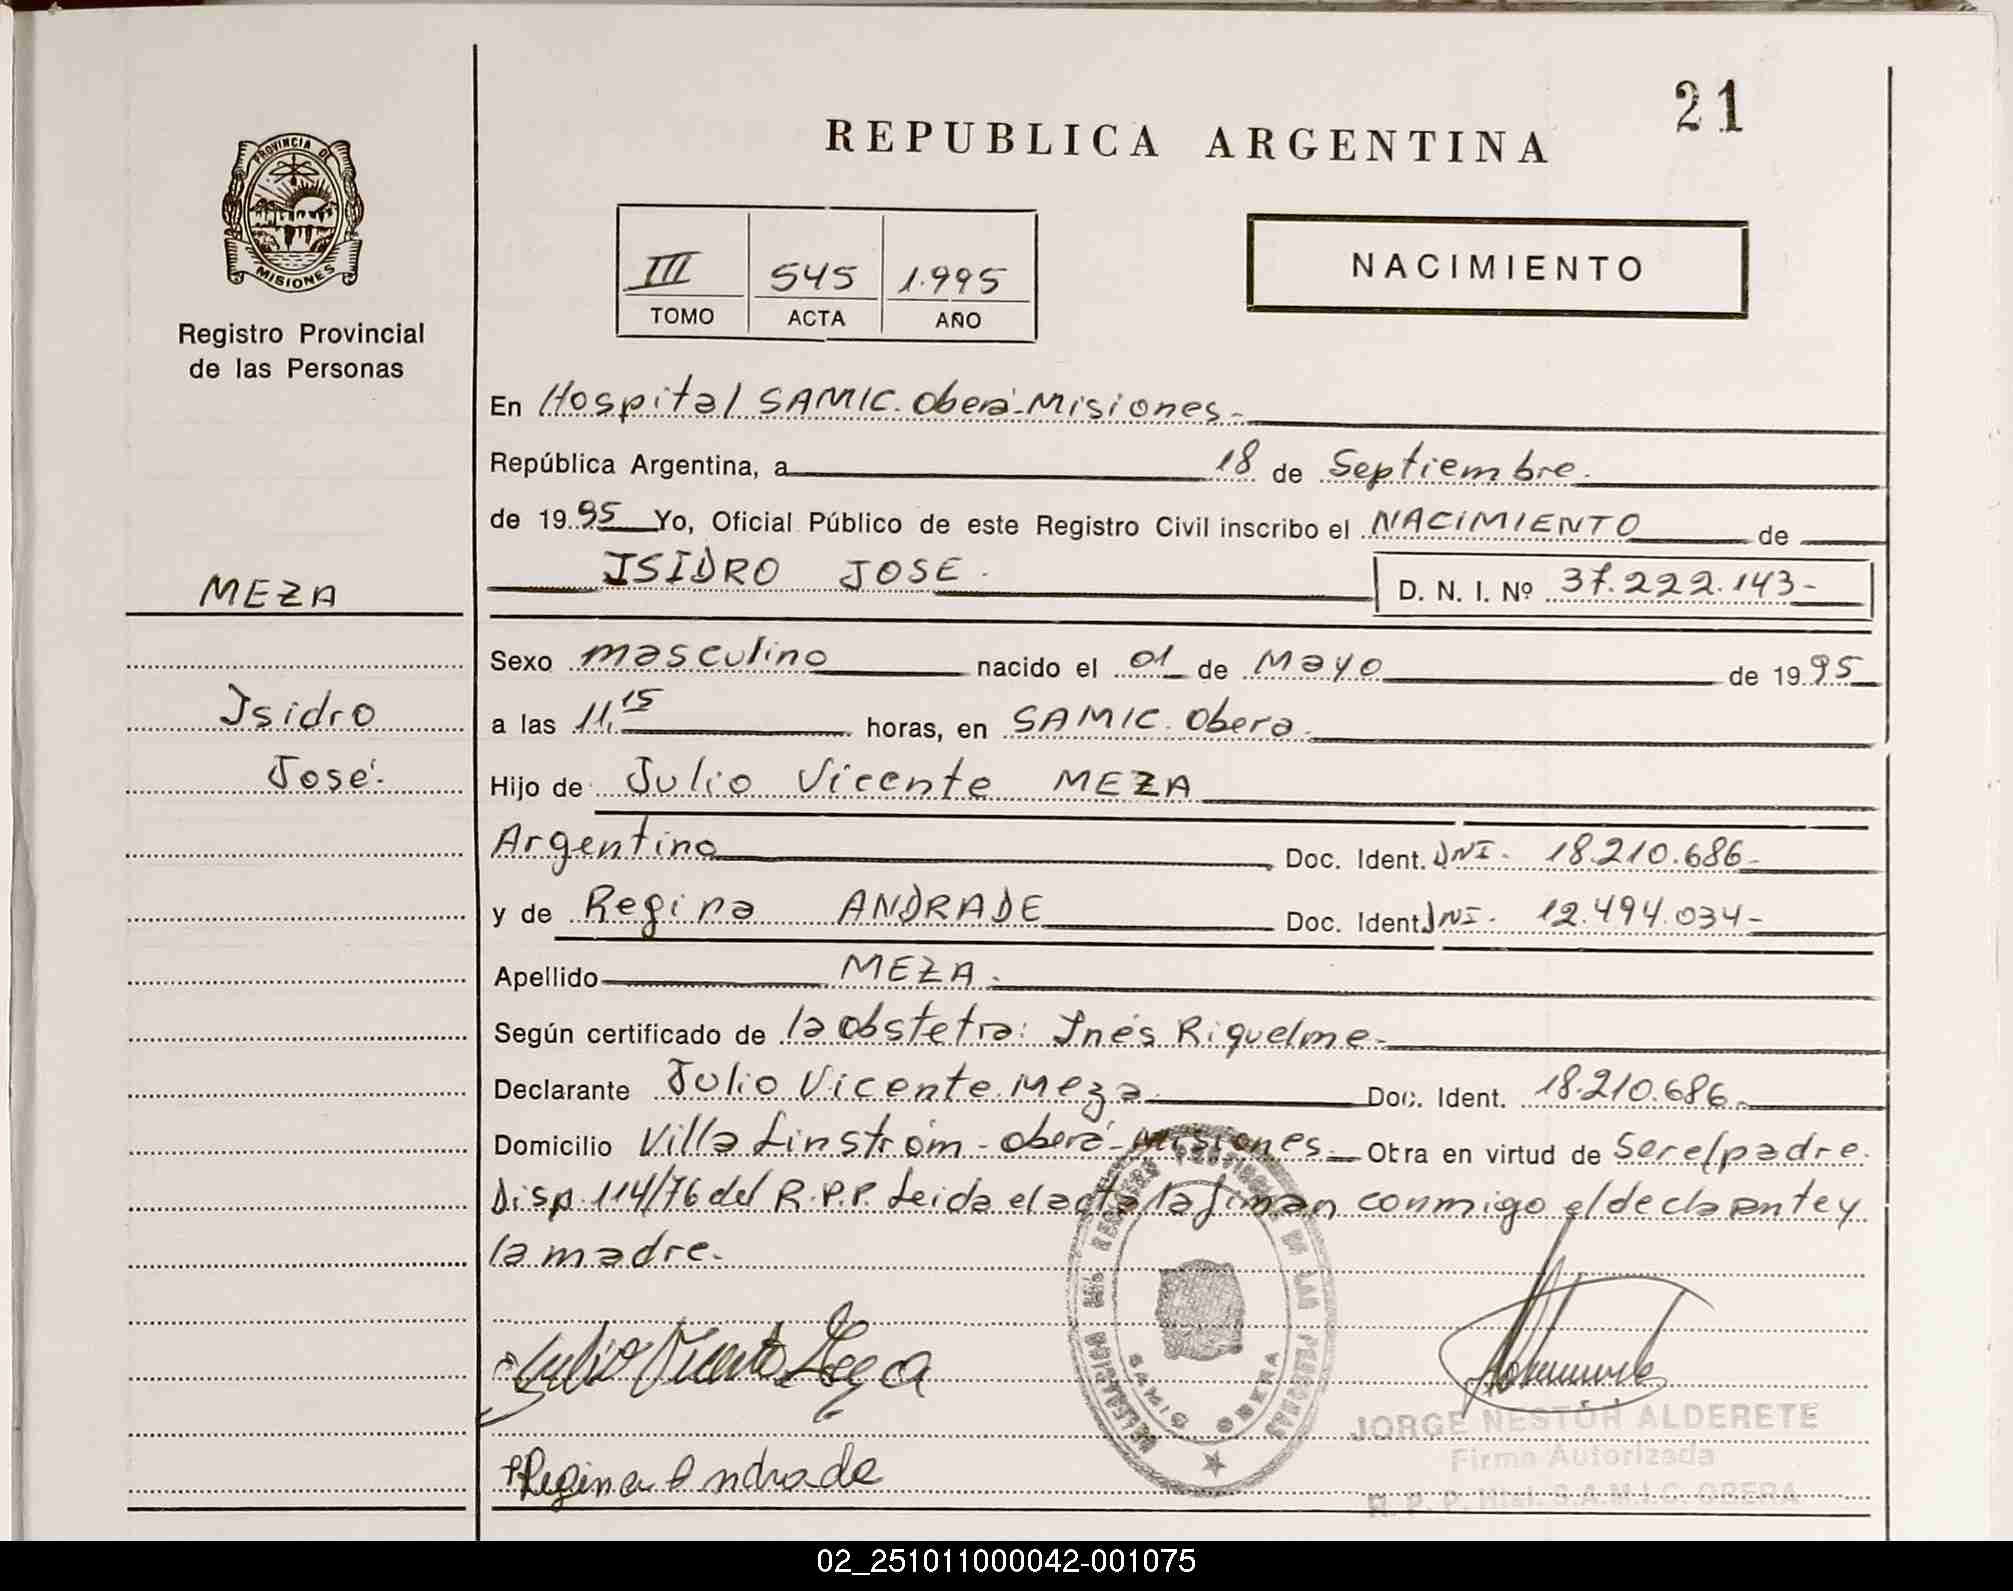 21
REPUBLICA ARGENTINA
PROVINCIA DE
MISIONES
III 545 1.995
TOMO ACTA AÑO
NACIMIENTO
Registro Provincial
de las Personas
En Hospital SAMIC. Oberá-Misiones-
República Argentina, a 18 de Septiembre.
de 1995 Yo, Oficial Público de este Registro Civil inscribo el NACIMIENTO de
ISIDRO JOSE. D. N. I. Nº 37.222.143-
MEZA
Sexo masculino nacido el 01 de Mayo de 1995
Isidro
a las 11,15 horas, en SAMIC. Obera.
José.
Hijo de Julio Vicente MEZA
Argentino Doc. Ident. DNI. 18.210.686-
y de Regina ANDRADE Doc. Ident. DNI. 12.494.034-
Apellido MEZA.
Según certificado de la obstetra: Inés Riquelme-
Declarante Julio Vicente Meza Doc. Ident. 18.210.686-
Domicilio Villa Linström - Oberá-Misiones- Obra en virtud de Ser el padre.
Disp. 114/76 del R.P.P. Leida el acta la firman conmigo el declarante y
la madre.
Julio Vicente Meza
Regina Andrade
DELEGACION DEL REGISTRO PROVINCIAL DE LAS PERSONAS
SAMIC OBERA
JORGE NESTOR ALDERETE
Firma Autorizada
R. P. P. S.A.M.I.C. OBERA
02_251011000042-001075